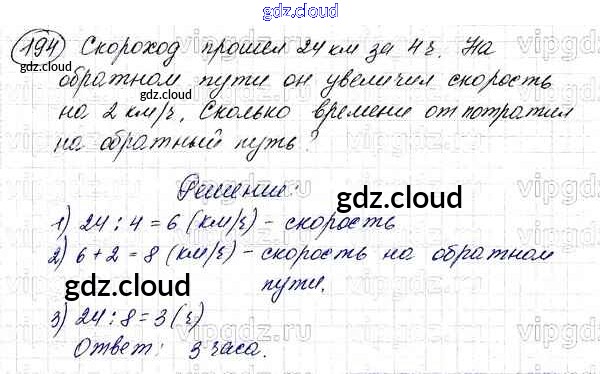 gdz.cloud
194 Скороход прошел 24 км за 4 ч. На
обратном пути он увеличил скорость
на 2 км/ч. Сколько времени от потратил
на обратный путь?
Решение:
1) 24 : 4 = 6 (км/ч) - скорость
2) 6 + 2 = 8 (км/ч) - скорость на обратном
пути.
3) 24 : 8 = 3 (ч)
Ответ: 3 часа.
gdz.cloud
gdz.cloud
gdz.cloud
gdz.cloud
gdz.cloud
vipgdz.ru